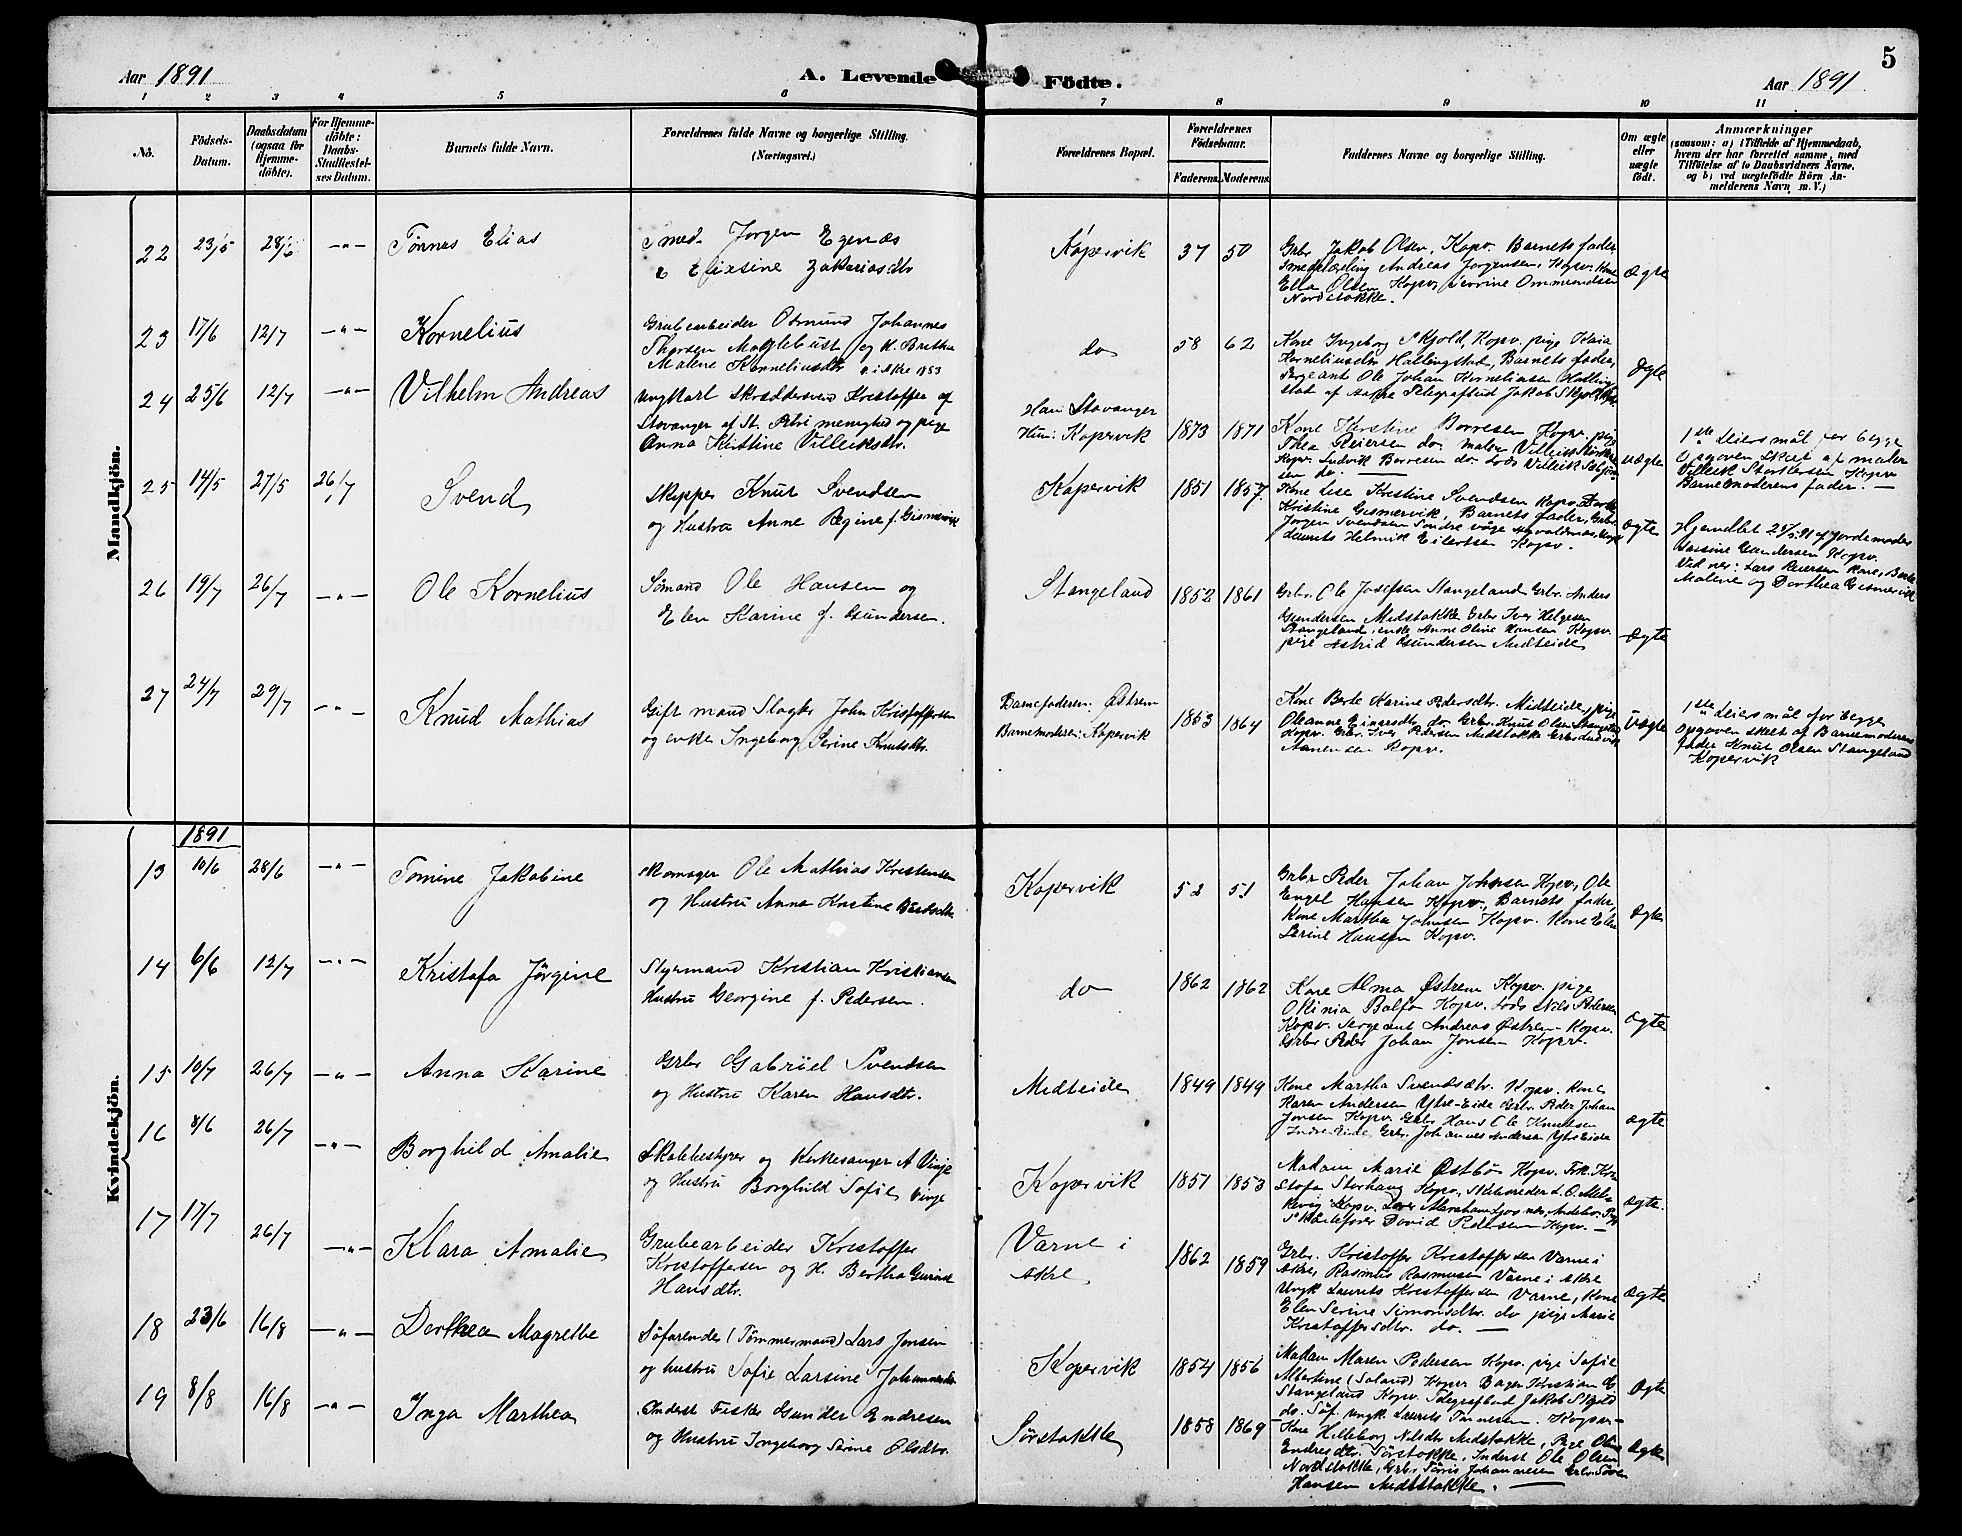 5
Aar 1891
A. Levende Födte.
Aar 1891
1 2 3 4 5 6 7 8 9 10 11
No.
Födsels-Datum.
Daabsdatum (ogsaa for Hjemmedöbte).
For Hjemmedöbte: Daabs-Stadfæstelses Datum.
Barnets fulde Navn.
Forældrenes fulde Navne og borgerlige Stilling. (Næringsvei.)
Forældrenes Bopæl.
Forældrenes Födselsaar.
Faderens. Moderens.
Faddernes Navne og borgerlige Stilling.
Om ægte eller uægte födt.
Anmærkninger
(saasom: a) i Tilfælde af Hjemmedaab, hvem der har forrettet samme, med Tilföielse af to Daabsvidners Navne, og b) ved uægtefödte Börn Anmelderens Navn m. V.)
Mandkjön.
22 23/5 28/6 -"- Tönnes Elias
Smed Jørgen Egenæs
Zakariasdtr
Kopervik 37 50
Grbr Jakob Olsen, Kopv. Barnets fader,
Smedlærling Andreas Jørgensen, Kopv. Kone
Ella Olsen Kopv, Ommundsen
Nordstokke.
Ægte
23 17/6 12/7 -"- Kornelius
Grubearbeider Osmund Johannes
Thorsen og H. Bertha
Malene Korneliusdtr
do 58 62
Kone Ingeborg Skjold, Kopv. pige
Korneliusdtr Hallingstad, Barnets fader,
Sergeant Ole Johan Korneliusen
Telegrafbud Jakob Skjold
Ægte
24 25/6 12/7 -"- Vilhelm Andreas
Ungkarl Skræddersvend Kristoffer
Stavanger af St. Petri menighed og pige
Anna Kristine Villeiksdtr.
Stavanger
Hun: Kopervik 1873 1871
Kone Kirstine Borresen Kopv. pige
Thea Reiersen do. maler Villeik
Kopv. Ludvik Borresen do. Lods Villeik
do
uægte
1ste Leiersmål for begge
Opgaven skeet af maler
Villeik Kopv
Barnemoderens fader. —
25 14/5 27/5 26/7 Svend
Skipper Knut Svendsen
og Hustru Anne Regine f. Gismervik
Kopervik 1851 1857.
Kone Lise Kristine Svendsen Kopv.
Kristine Gismervik, Barnets fader, Grbr
Jørgen Svendsen Søndre
Laurits Helmik Eilertsen Kopv.
Ægte
af Jordemoder
Gundersen Kopv.
Vidner: Lars Reiersen Kone,
Malene og Dorthea Gismervik
26 19/7 26/7 -"- Ole Kornelius
Sömand Ole Hansen og
Elen Karine f. Gundersen.
Stangeland 1852 1861
Grbr. Ole Josefsen Stangeland Grbr. Anders
Gundersen Midstokke Grbr Iver Helgesen
Stangeland, enke Anne Oline Hansen Kopv.
pige Astrid Gundersen Midteide
Ægte
27 24/7 29/7 -"- Knud Mathias
Gift mand John Kristoffersen
og enke Ingeborg Serine Knutsdtr.
Barnefaderen: Østrem
Barnemoderen: Kopervik
1853 1864
Kone Berte Karine Pedersdtr. Midteide, pige
Oleanne Einarsdtr do. Grbr. Knut Olsen Stangeland
Kopv. Grbr. Iver Pedersen Midstokke Grbr Ludvik
Aanensen Kopv.
Uægte
1ste Leiersmål for begge
Opgaven skeet af Barnemoderens
fader Knut Olsen Stangeland
Kopervik
Kvindekjön.
1891
13 10/6 28/6 -"- Tomine Jakobine
Skomager Ole Mathias Kristensen
og Hustru Anna Kirstine
Kopervik 52 51
Grbr Peder Johan Johnsen Kopv, Ole
Engel Hansen Kopv, Barnets fader,
Kone Martha Johnsen Kopv. Kone Elen
Serine Hansen Kopv.
Ægte
14 6/6 12/7 -"- Kristofa Jörgine
Styrmand Kristian Kristiansen
Hustru Georgine f. Pedersen.
do 1862 1862
Kone Alma Østrem Kopv. pige
Balfo Kopv. Lods Nils Pedersen
Kopv. Sergeant Andreas Østrem - Kopv.
Grbr Peder Johan Jonsen Kopv.
Ægte
15 10/7 26/7 -"- Anna Karine
Grbr Gabriel Svendsen
og Hustru Karen Hansdtr.
Midteide 1849 1849
Kone Martha Svendsdtr. Kopv. Kone
Karen Andersen Ytre-Eide Grbr. Peder Johan
Jonsen Kopv. Grbr Hans Ole Knutsen
Indre-Eide, Grbr. Johannes Andersen Ytre Eide
Ægte
16 8/6 26/7 -"- Borghild Amalie
Skolebestyrer og Kirkesanger A Vinje
og Hustru Borghild Sofie Vinje
Kopervik 1851 1853
Madam Marie Østbö Kopv. Frk. Kristofa
Storhaug Kopv, Skibsreder L. O.
Kopv.
David Pedersen Kopv. —
Ægte.
17 17/7 26/7 -"- Klara Amalie
Grubearbeider Kristoffer
Kristoffersen og H. Bertha Gurine
Hansdtr.
Varne i
Akre 1862 1859
Grbr. Kristoffer Kristoffersen Varne i
Akre, Rasmus Rasmusen Varne i Akre
Ungk Laurits Kristoffersen Varne, Kone
Elen Serine Simonsdtr. do pige Marie
Kristoffersdtr. do. —
Ægte
18 23/6 16/8 -"- Dorthea Magrethe
Söfarende (Tömmermand) Lars Jonsen
og hustru Sofie Larsine
Kopervik 1854 1856
Madam Maren Pedersen Kopv. pige Sofie
Albertine (Soland) Koper Bager Kristian
Stangeland Kopv. Telegrafbud Jakob Skjold
do. Söf. Ungk. Laurits Tönnesen. Kopv. —
Ægte
19 8/8 16/8 -"- Inga Marthea
Inderst Fisker Gunder Endresen
og Hustru Ingeborg Serine Olsdtr.
Sörstokke 1858 1869
Kone Helleborg Nilsdtr Midstokke, Pige
Endresdtr. Sörstokke, Inderst Ole Olsen
Nordstokke, Grbr. Johannesen Grbr
Hansen Midtstokke. —
Ægte